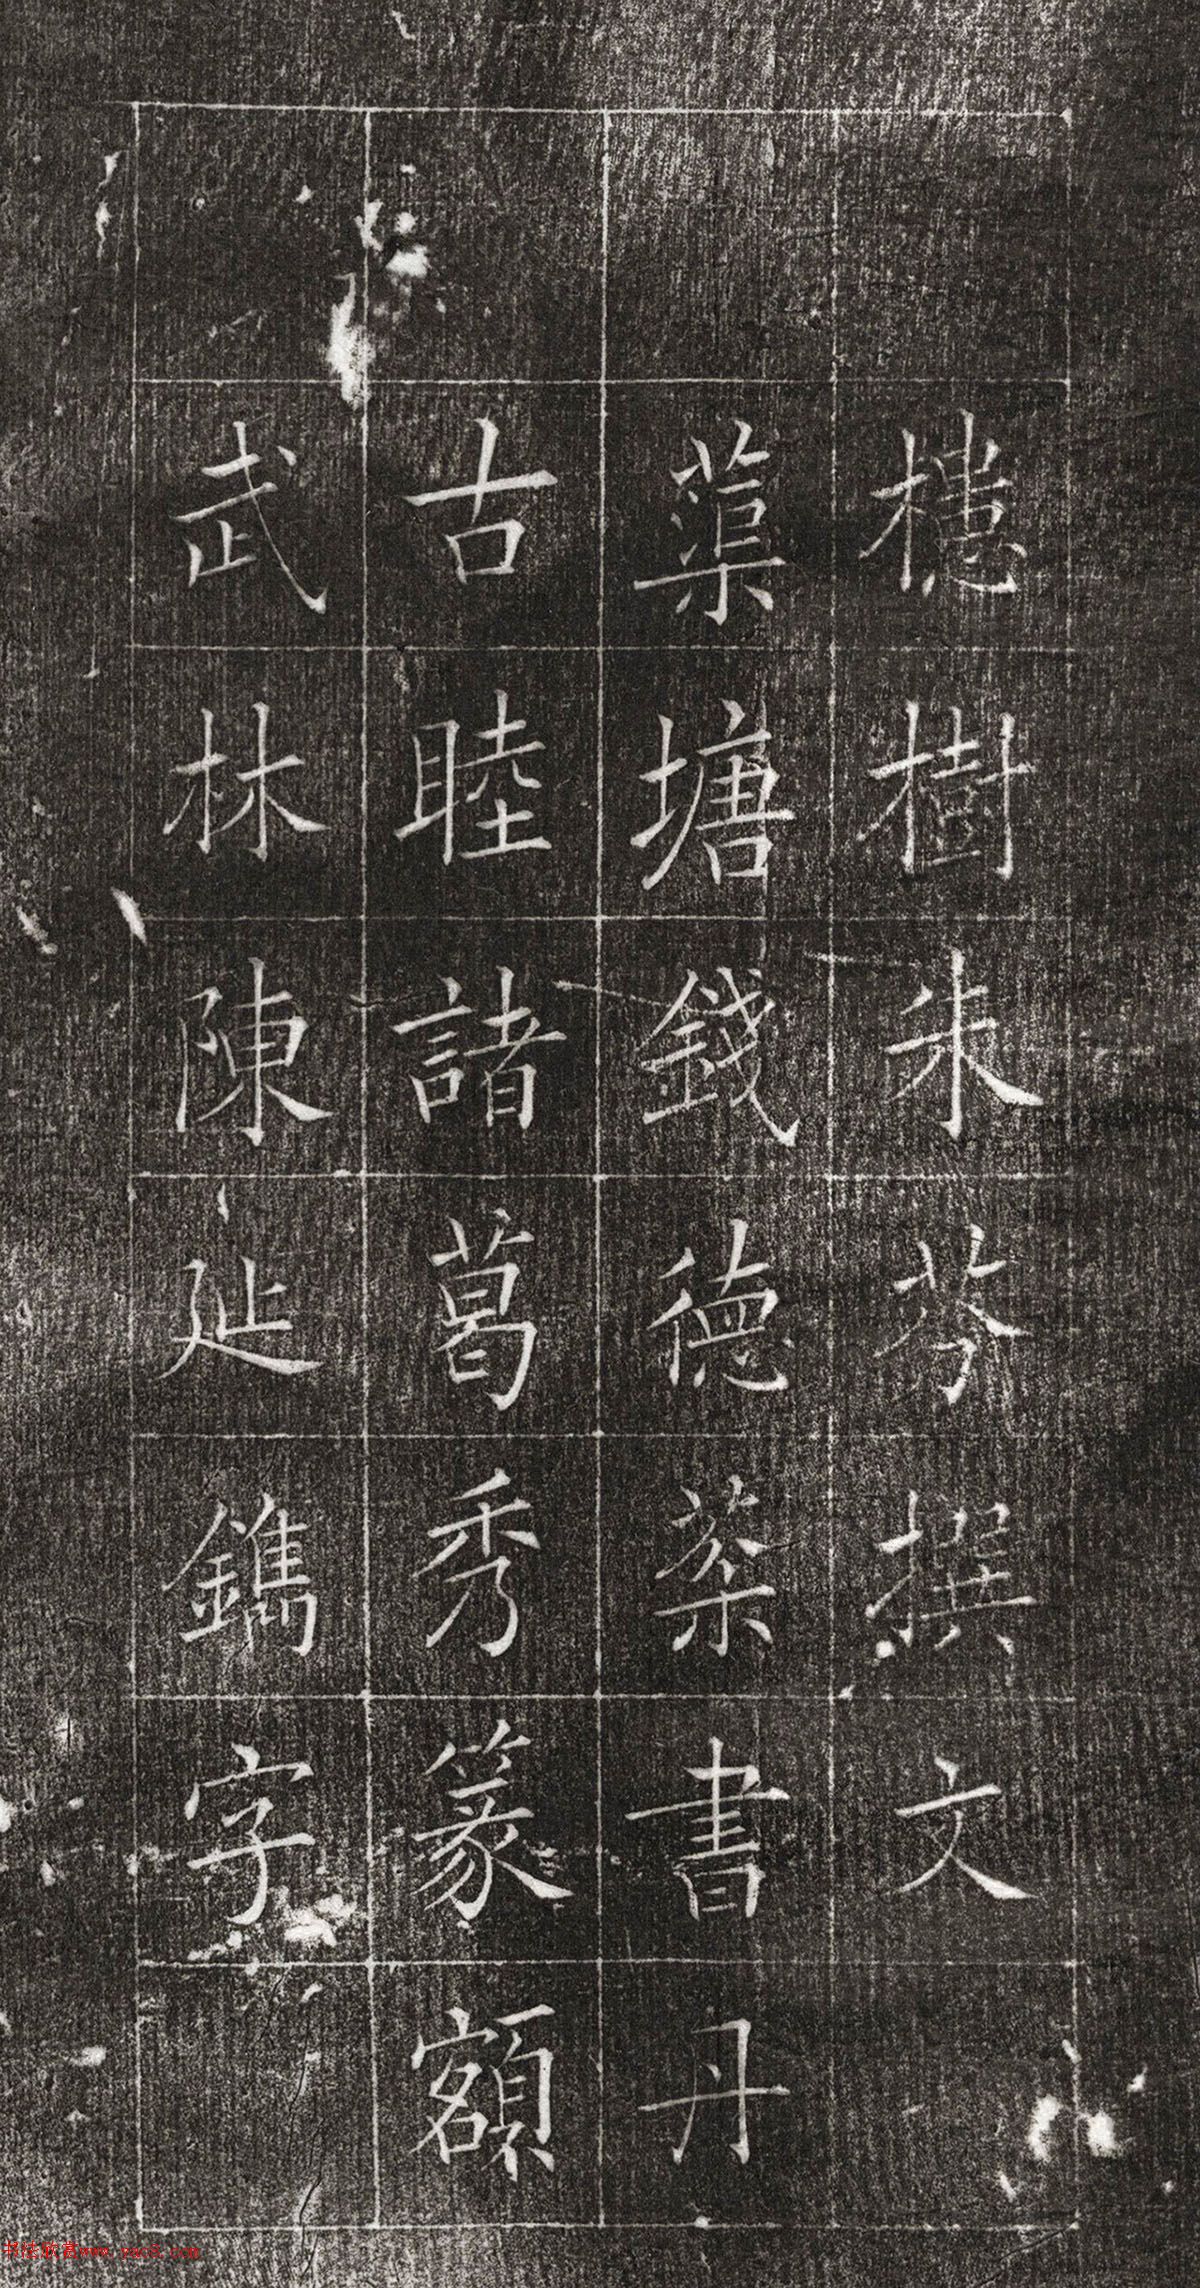 樹朱芬撰文
蕖塘錢德棻書丹
古睦諸葛秀篆額
武林陳延鐫字
书法欣赏www.yac8.com